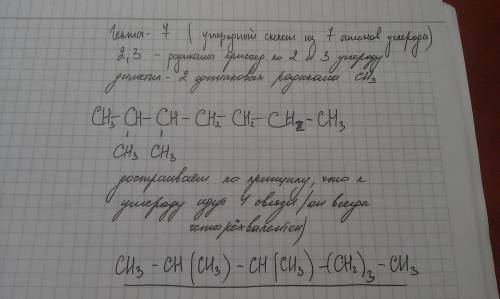 Гепта - 7 ( углеродный скелет из 7 атомов углерода)
2,3 - радикалы присоед. ко 2 и 3 углероду
диметил - 2 одинаковых радикала CH3
CH3 - CH - CH - CH2 - CH2 - CH2 - CH3
CH3 CH3
достраиваем по принципу, что к
углероду идут 4 связи (он всегда
четырёхвалентен)
CH3 - CH (CH3) - CH (CH3) - (CH2)3 - CH3